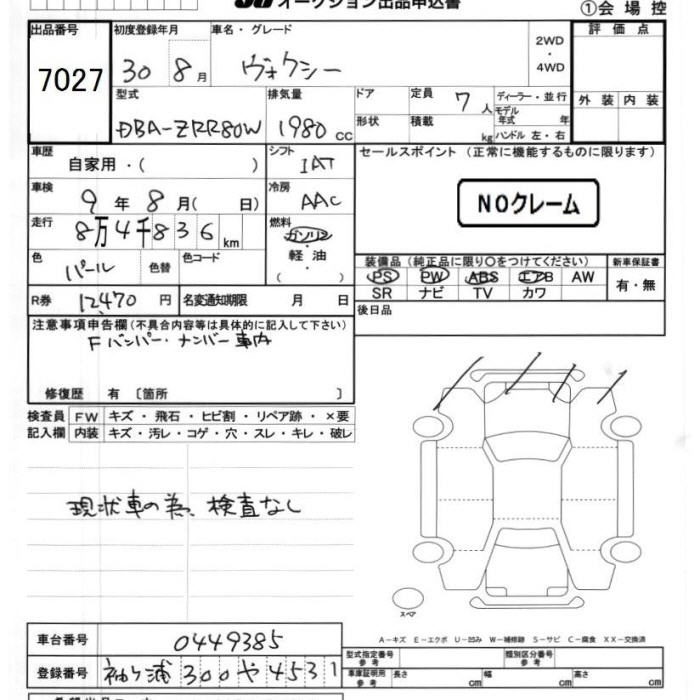 オークション出品申込書
①会場控
出品番号 初度登録年月 車名・グレード 2WD・4WD 評価点
7027 30 8月 ヴォクシー
外装 内装
型式 排気量 ドア 定員 7人 ディーラー・並行
モデル年式 年
DBA-ZRR80W 1980cc 形状 積載 kg ハンドル 左・右
車歴 シフト セールスポイント (正常に機能するものに限ります)
自家用・( ) IAT
車検 冷房 NOクレーム
9年8月( 日) AAC
走行 燃料
8万4千836km ガソリン
色 色替 色コード 軽油 装備品(純正品に限り○をつけてください) 新車保証書
パール ( ) PS PW ABS エアB AW 有・無
SR ナビ TV カワ
R券 12,470円 名変通知期限 月 日 後日品
注意事項申告欄(不具合内容等は具体的に記入して下さい)
Fバンパー・ナンバー車内
修復歴 有 〔箇所 〕
検査員 FW キズ・飛石・ヒビ割・リペア跡・×要
記入欄 内装 キズ・汚レ・コゲ・穴・スレ・キレ・破レ
現状車の為、検査なし
スペア
A-キズ E-エクボ U-凹み W-補修跡 S-サビ C-腐食 XX-交換済
車台番号 0449385 型式指定番号 参考 類別区分番号 参考
登録番号 袖ヶ浦 300 や 4531 車庫証明用 参考 長さ cm 幅 cm 高さ cm